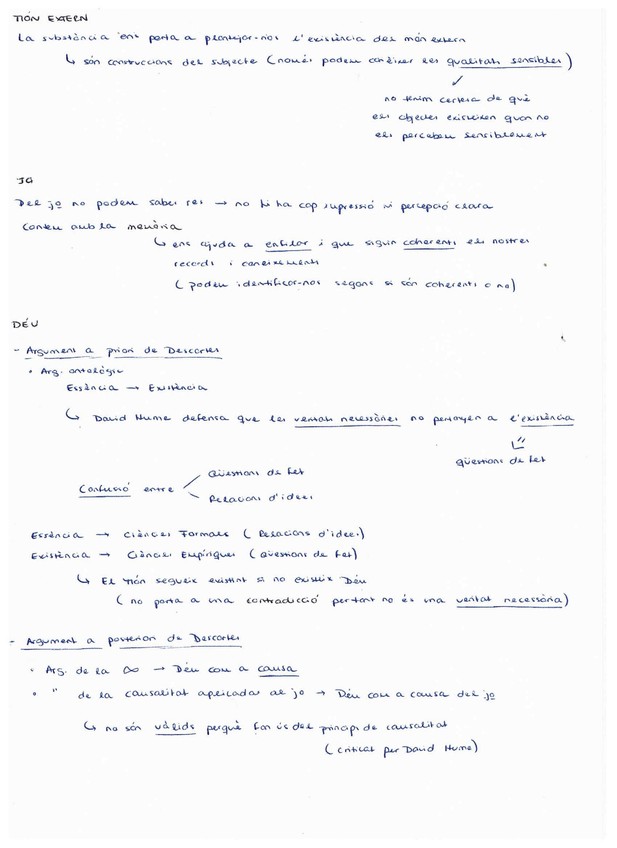 MÓN EXTERN
La substància ens porta a plantejar-nos l'existència del món extern
↳ són construccions del subjecte (només podem conèixer les qualitats sensibles)
no tenim certesa de què
els objectes existeixen quan no
els percebem sensiblement
JO
Del jo no podem saber res → no hi ha cap impressió ni percepció clara
Conteu amb la memòria
↳ ens ajuda a enfilar i que siguin coherents els nostres
records i coneixements
(podem identificar-nos segons si són coherents o no)
DÉU
- Argument a priori de Descartes
• Arg. ontològic
Essència → Existència
↳ David Hume defensa que les veritats necessàries no pertanyen a l'existència
qüestions de fet
Qüestions de fet
Confusió entre
Relacions d'idees
Essència → Ciències Formals (Relacions d'idees)
Existència → Ciències Empíriques (Qüestions de fet)
↳ El món segueix existint si no existeix Déu
(no porta a una contradicció pertant no és una veritat necessària)
- Argument a posteriori de Descartes
• Arg. de la ∞ → Déu com a causa
• " de la causalitat aplicada al jo → Déu com a causa del jo
↳ no són vàlids perquè fan ús del principi de causalitat
(criticat per David Hume)